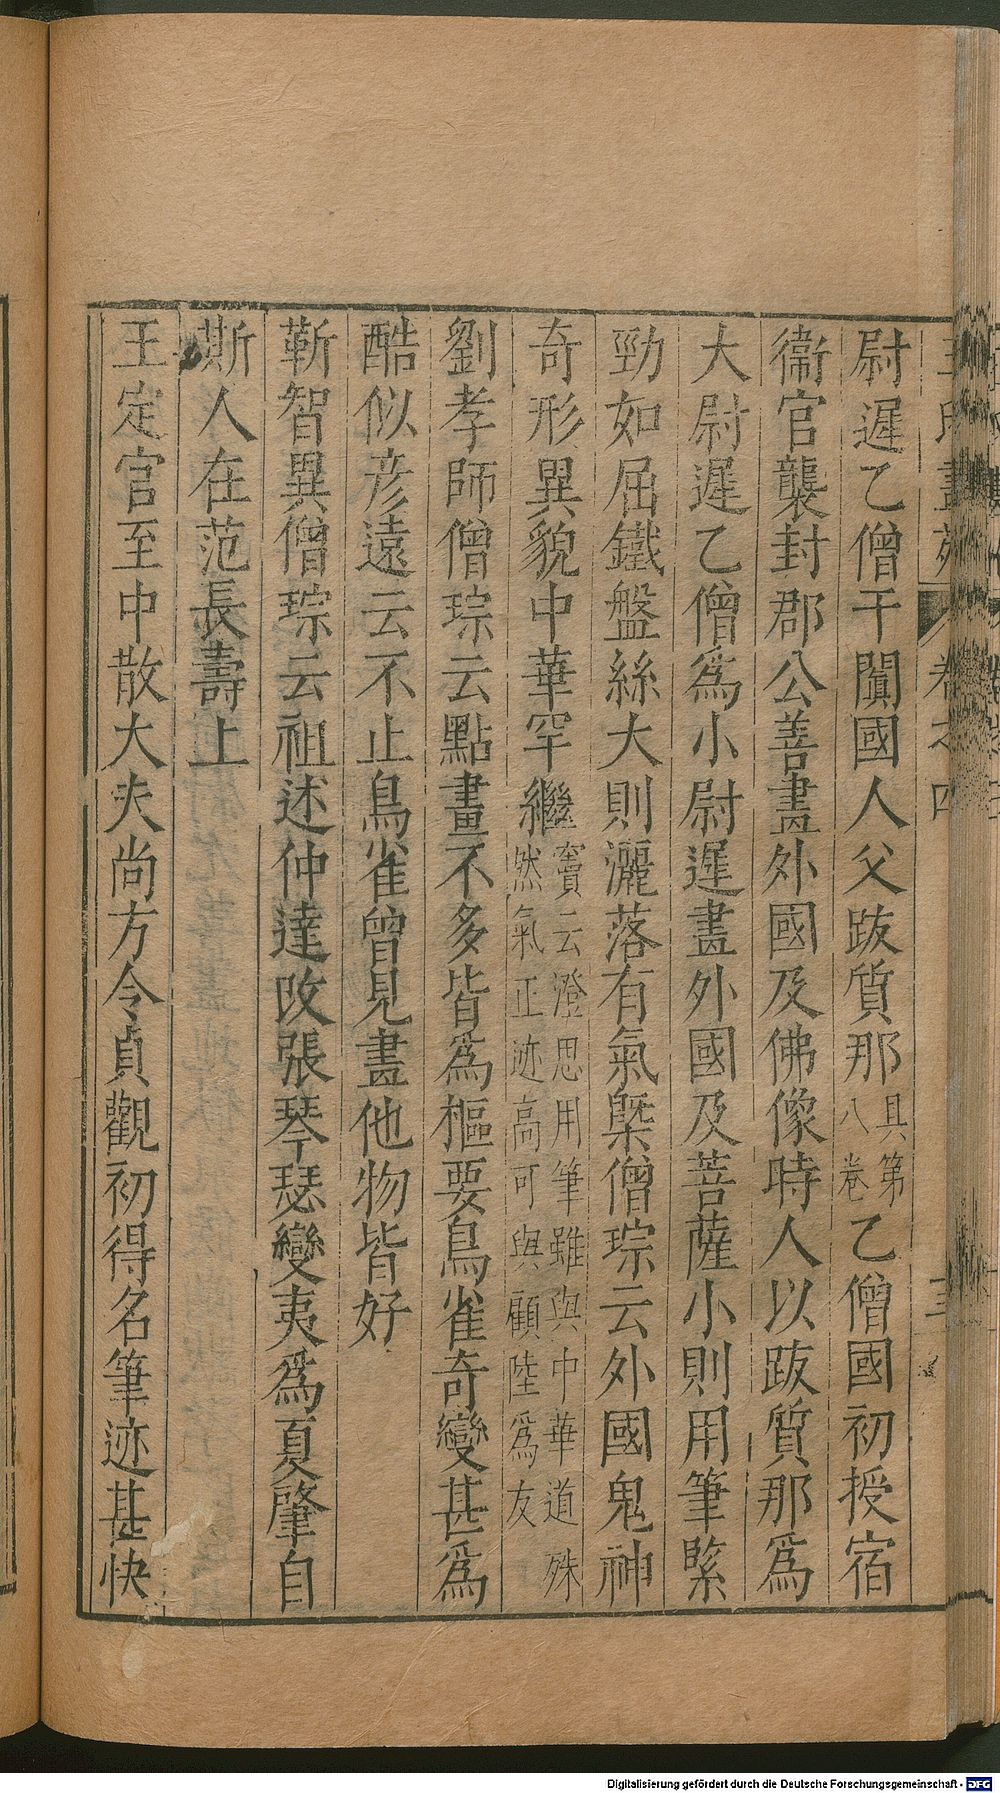 尉遲乙僧干闐國人父跋質那具第八卷乙僧國初授宿
衞官襲封郡公善畫外國及佛像時人以跋質那爲
大尉遲乙僧爲小尉遲畫外國及菩薩小則用筆緊
勁如屈鐵盤絲大則灑落有氣槩僧琮云外國鬼神
奇形異貌中華罕繼竇云澄思用筆雖與中華道殊然氣正迹高可與顧陸爲友
劉孝師僧琮云點畫不多皆爲樞要鳥雀奇變甚爲
酷似彦遠云不止鳥雀曾見畫他物皆好
靳智異僧琮云祖述仲達改張琴瑟變夷爲夏肇自
斯人在范長壽上
王定官至中散大夫尚方令貞觀初得名筆迹甚快
王氏畫苑 卷之四
Digitalisierung gefördert durch die Deutsche Forschungsgemeinschaft - DFG